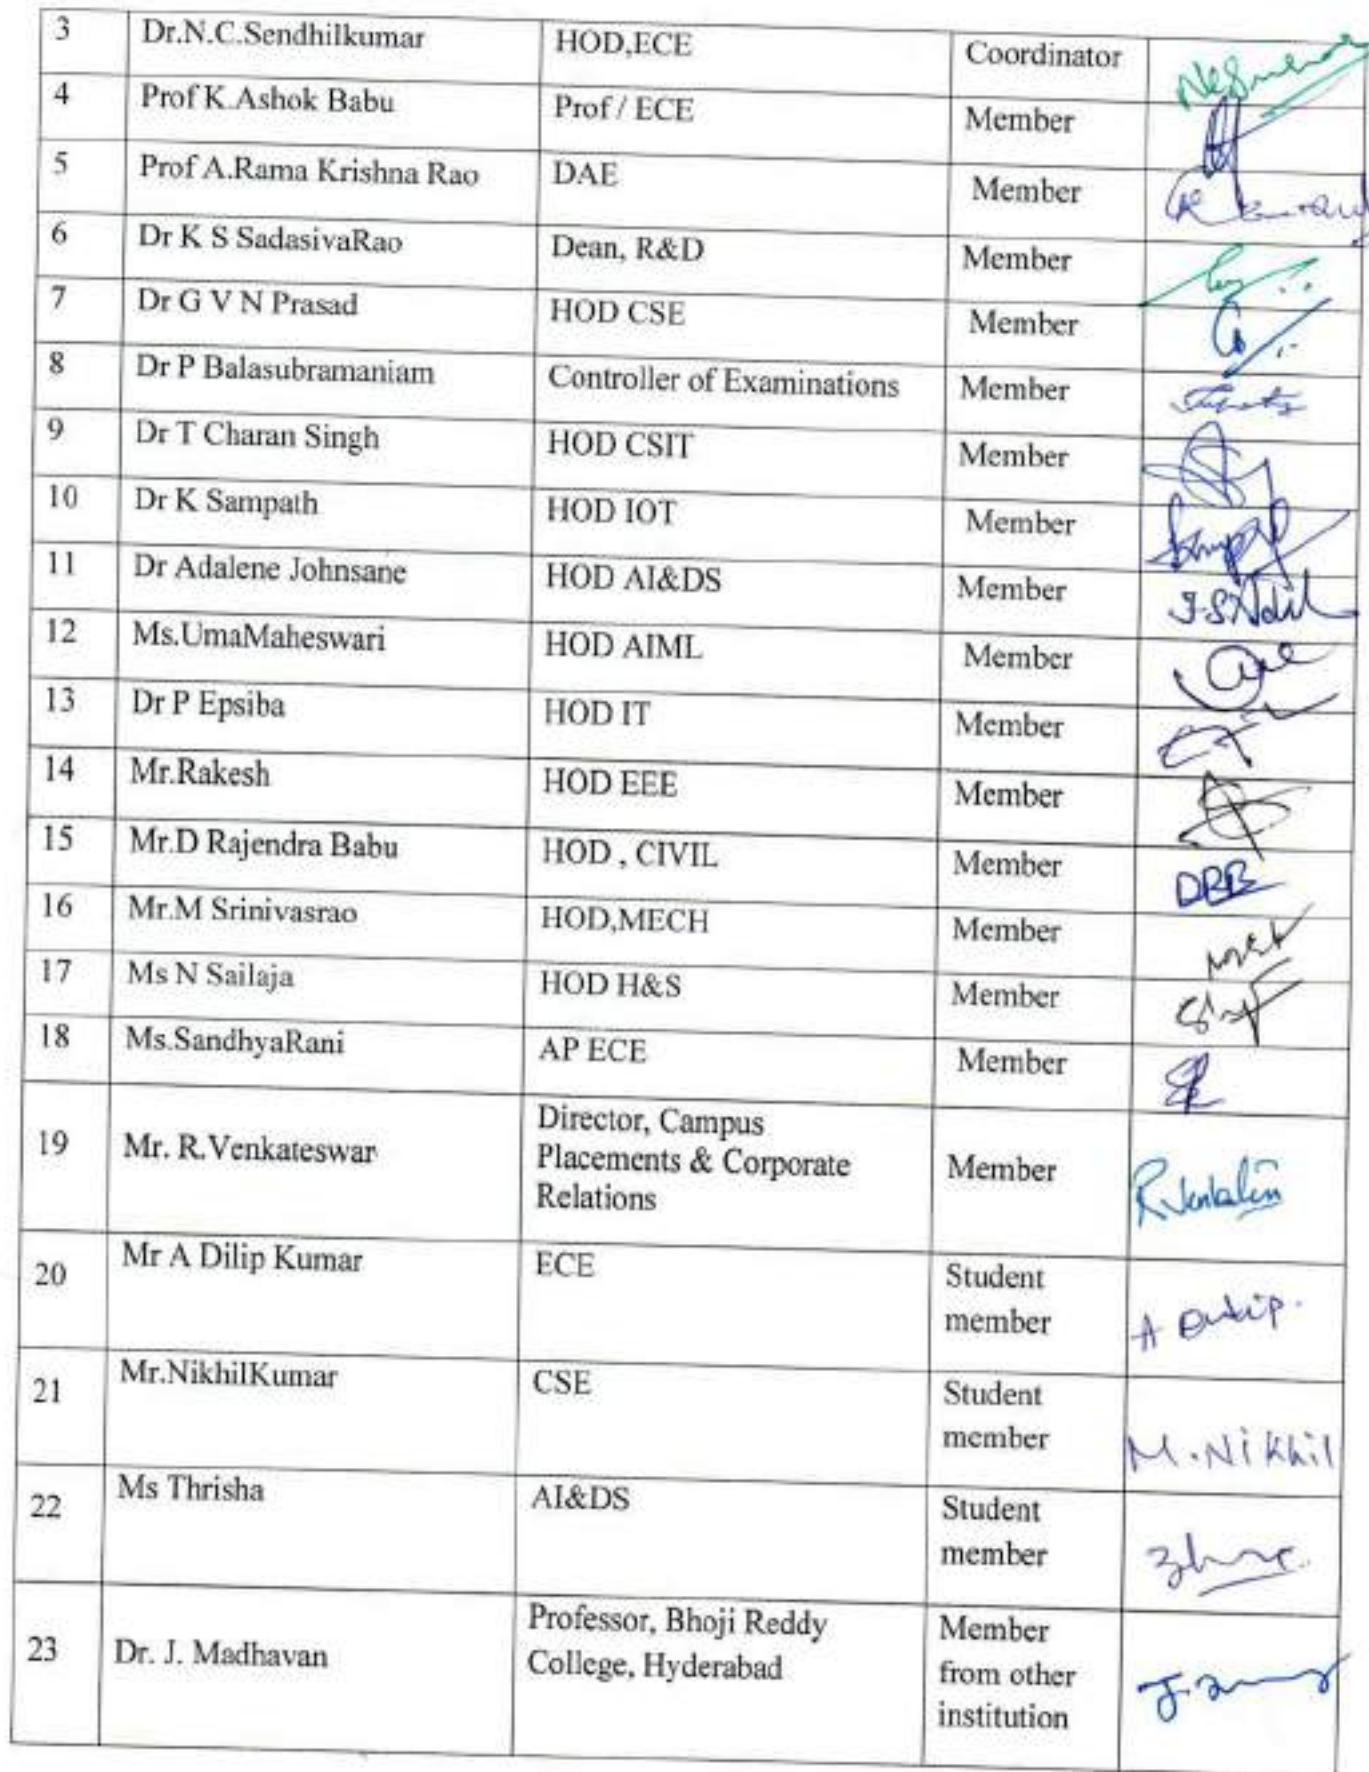 3 Dr.N.C.Sendhilkumar HOD,ECE Coordinator
4 Prof K.Ashok Babu Prof / ECE Member
5 Prof A.Rama Krishna Rao DAE Member
6 Dr K S SadasivaRao Dean, R&D Member
7 Dr G V N Prasad HOD CSE Member
8 Dr P Balasubramaniam Controller of Examinations Member
9 Dr T Charan Singh HOD CSIT Member
10 Dr K Sampath HOD IOT Member
11 Dr Adalene Johnsane HOD AI&DS Member
12 Ms.UmaMaheswari HOD AIML Member
13 Dr P Epsiba HOD IT Member
14 Mr.Rakesh HOD EEE Member
15 Mr.D Rajendra Babu HOD , CIVIL Member DRB
16 Mr.M Srinivasrao HOD,MECH Member
17 Ms N Sailaja HOD H&S Member
18 Ms.SandhyaRani AP ECE Member
19 Mr. R.Venkateswar Director, Campus
Placements & Corporate
Relations Member
20 Mr A Dilip Kumar ECE Student
member A Dilip.
21 Mr.NikhilKumar CSE Student
member M.Nikhil
22 Ms Thrisha AI&DS Student
member
23 Dr. J. Madhavan Professor, Bhoji Reddy
College, Hyderabad Member
from other
institution